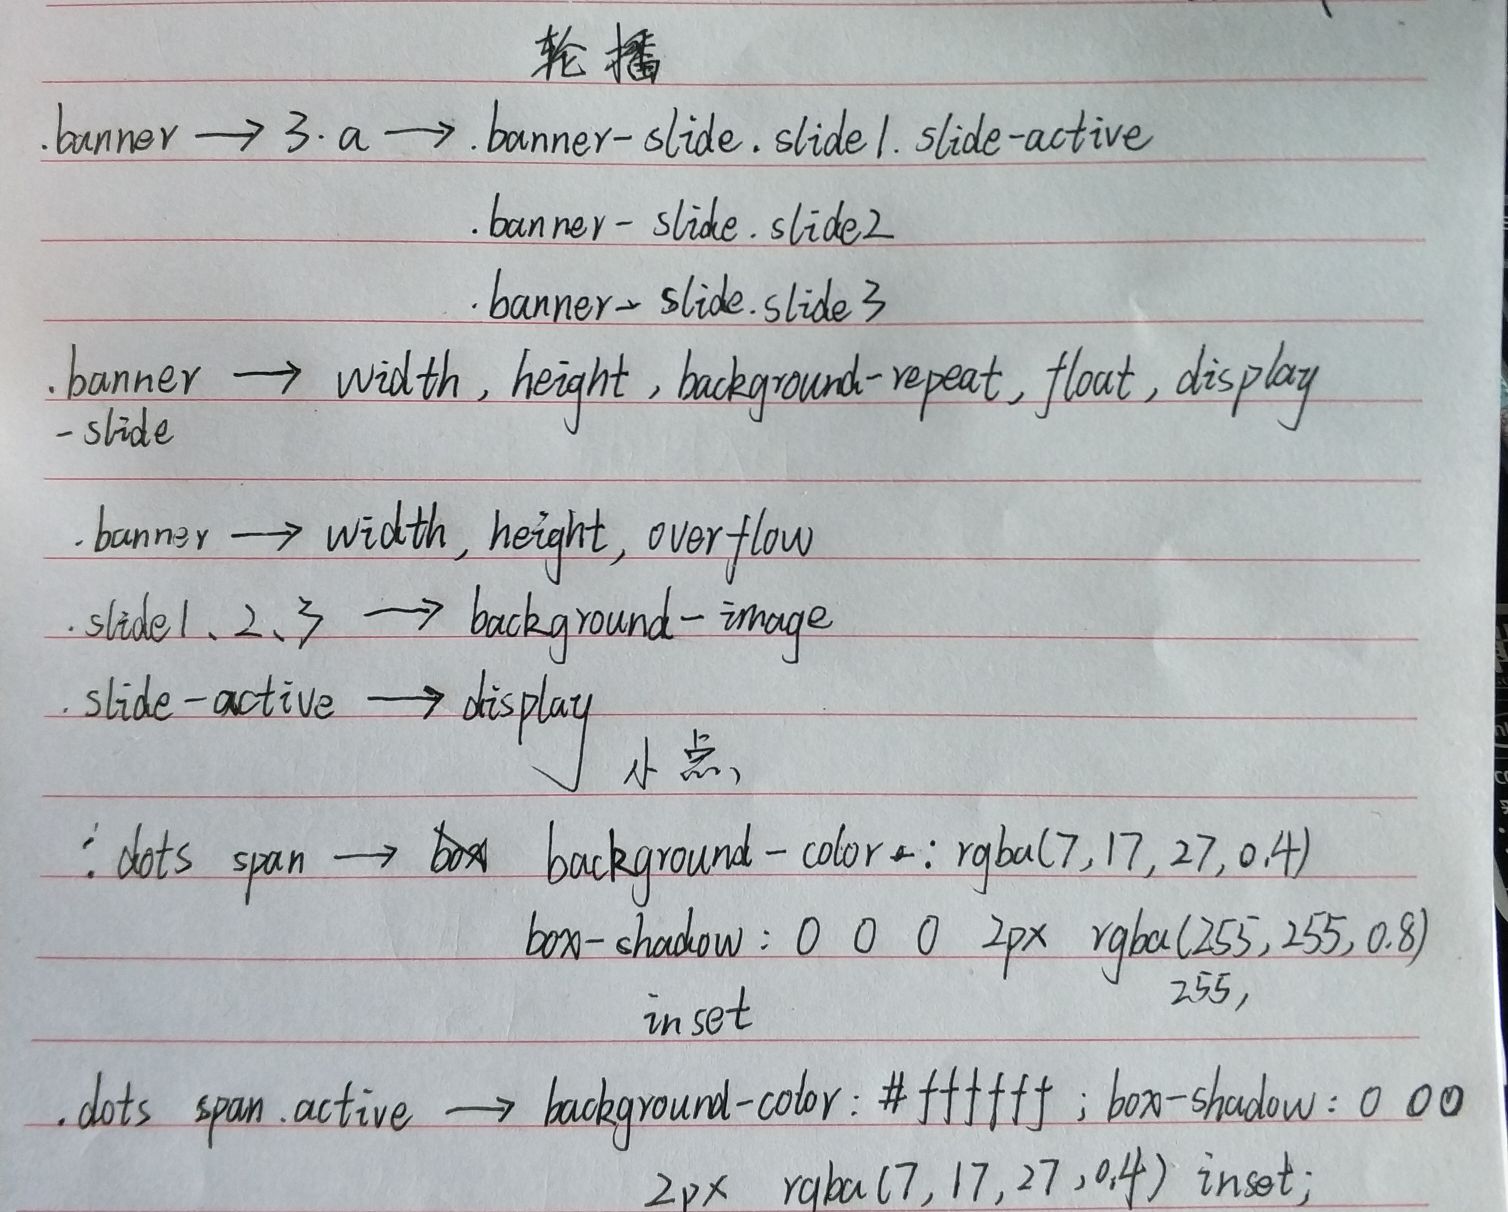 轮播
.banner → 3.a → .banner-slide.slide1.slide-active
.banner-slide.slide2
.banner-slide.slide3
.banner → width, height, background-repeat, float, display
-slide
.banner → width, height, overflow
.slide1、2、3 → background-image
.slide-active → display
小点、
.dots span → background-color: rgba(7,17,27,0.4)
box-shadow: 0 0 0 2px rgba(255,255,0.8)
255,
inset
.dots span.active → background-color: #ffffff; box-shadow: 0 0 0
2px rgba(7,17,27,0.4) inset;